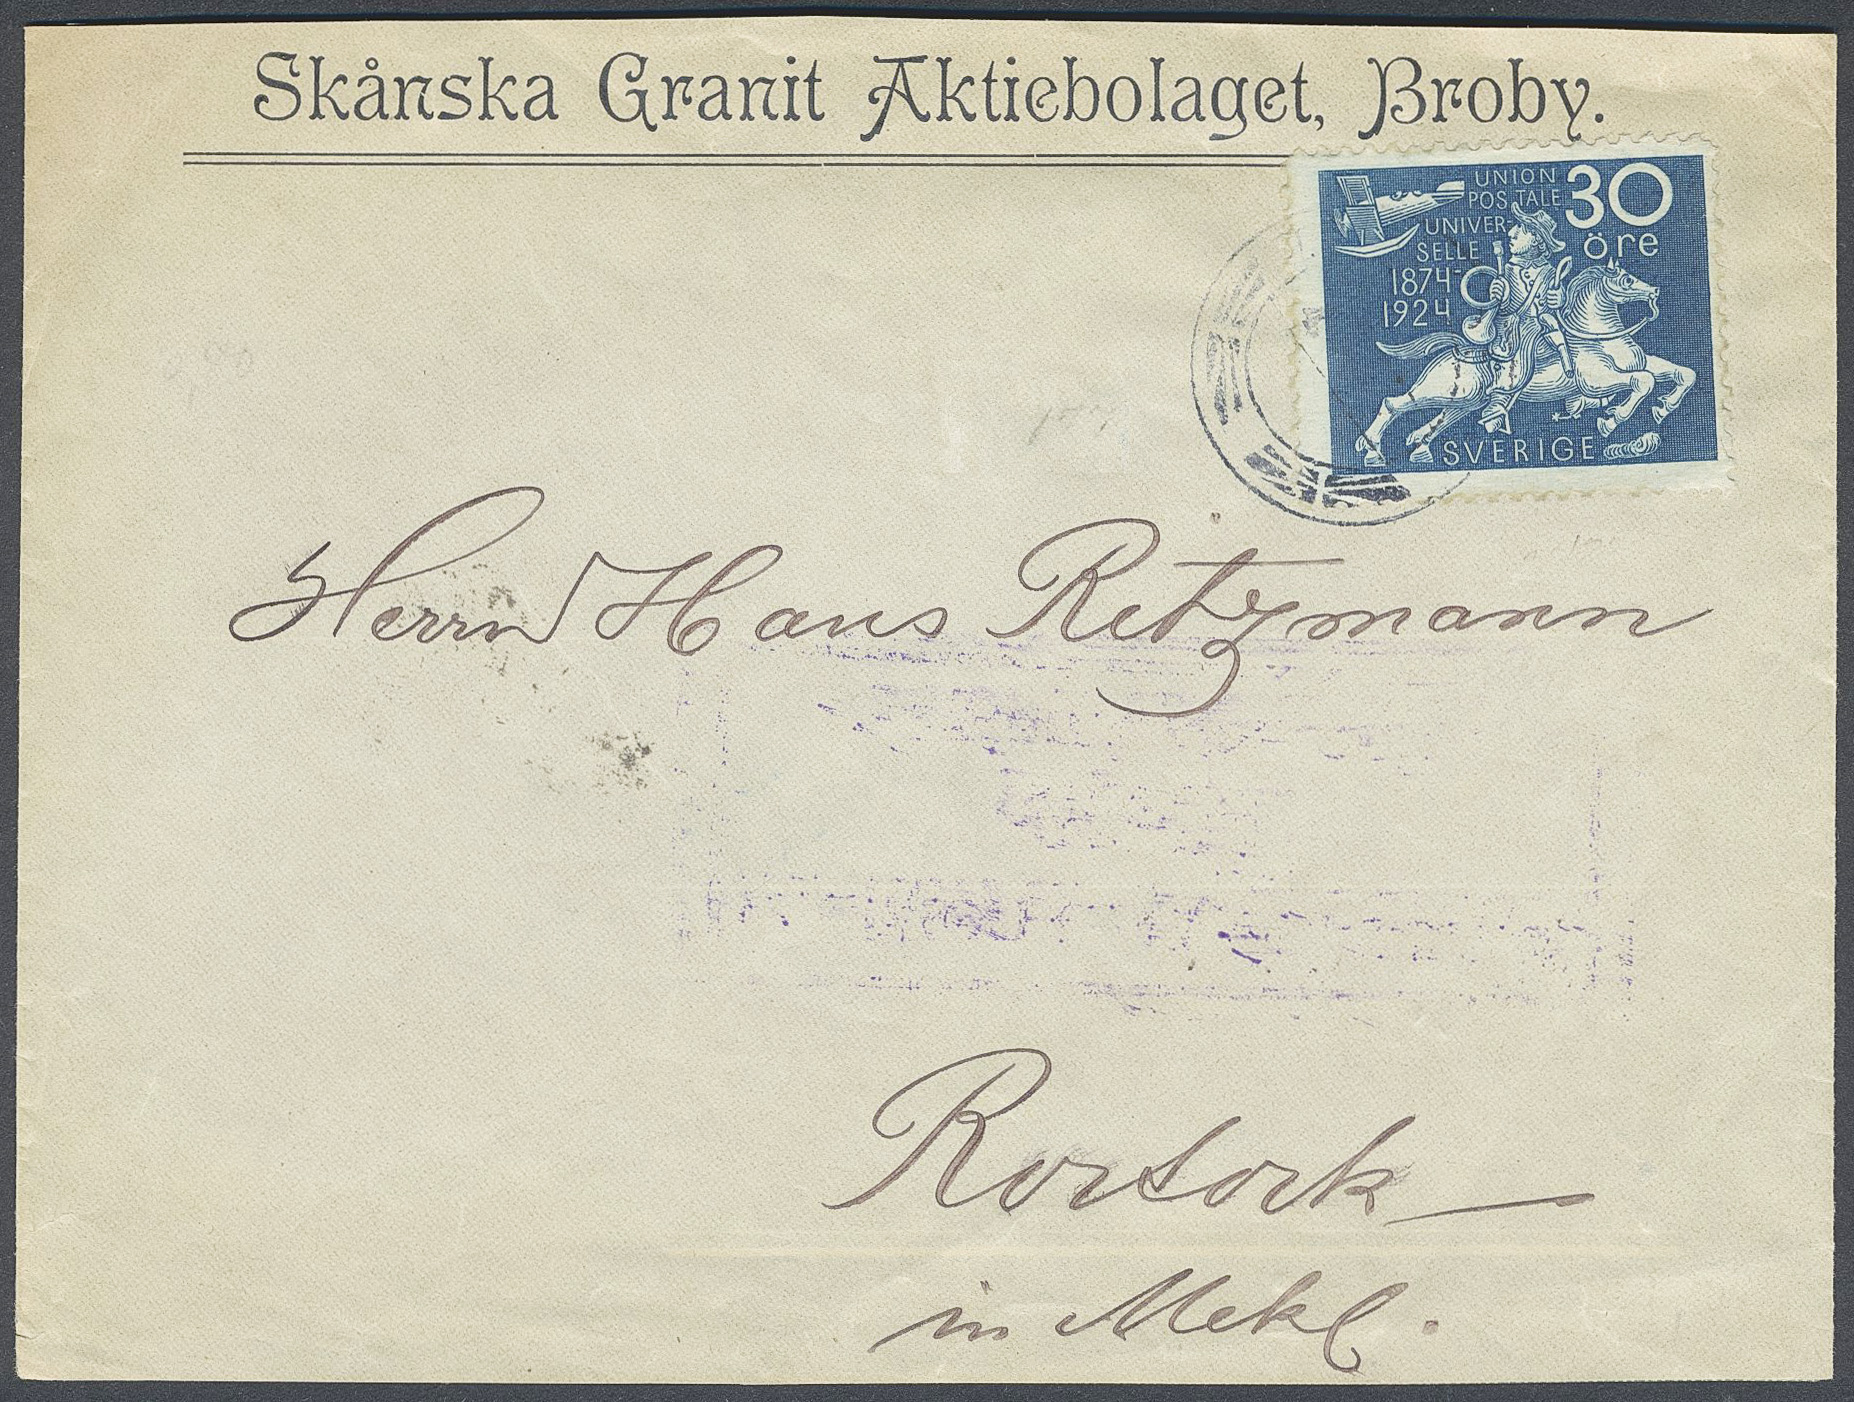 Skånska Granit Aktiebolaget, Broby.
UNION 30
POSTALE
UNIVER-
SELLE öre
1874-
1924
SVERIGE
Herrn Hans Retzmann
Rostock
in Mekl.